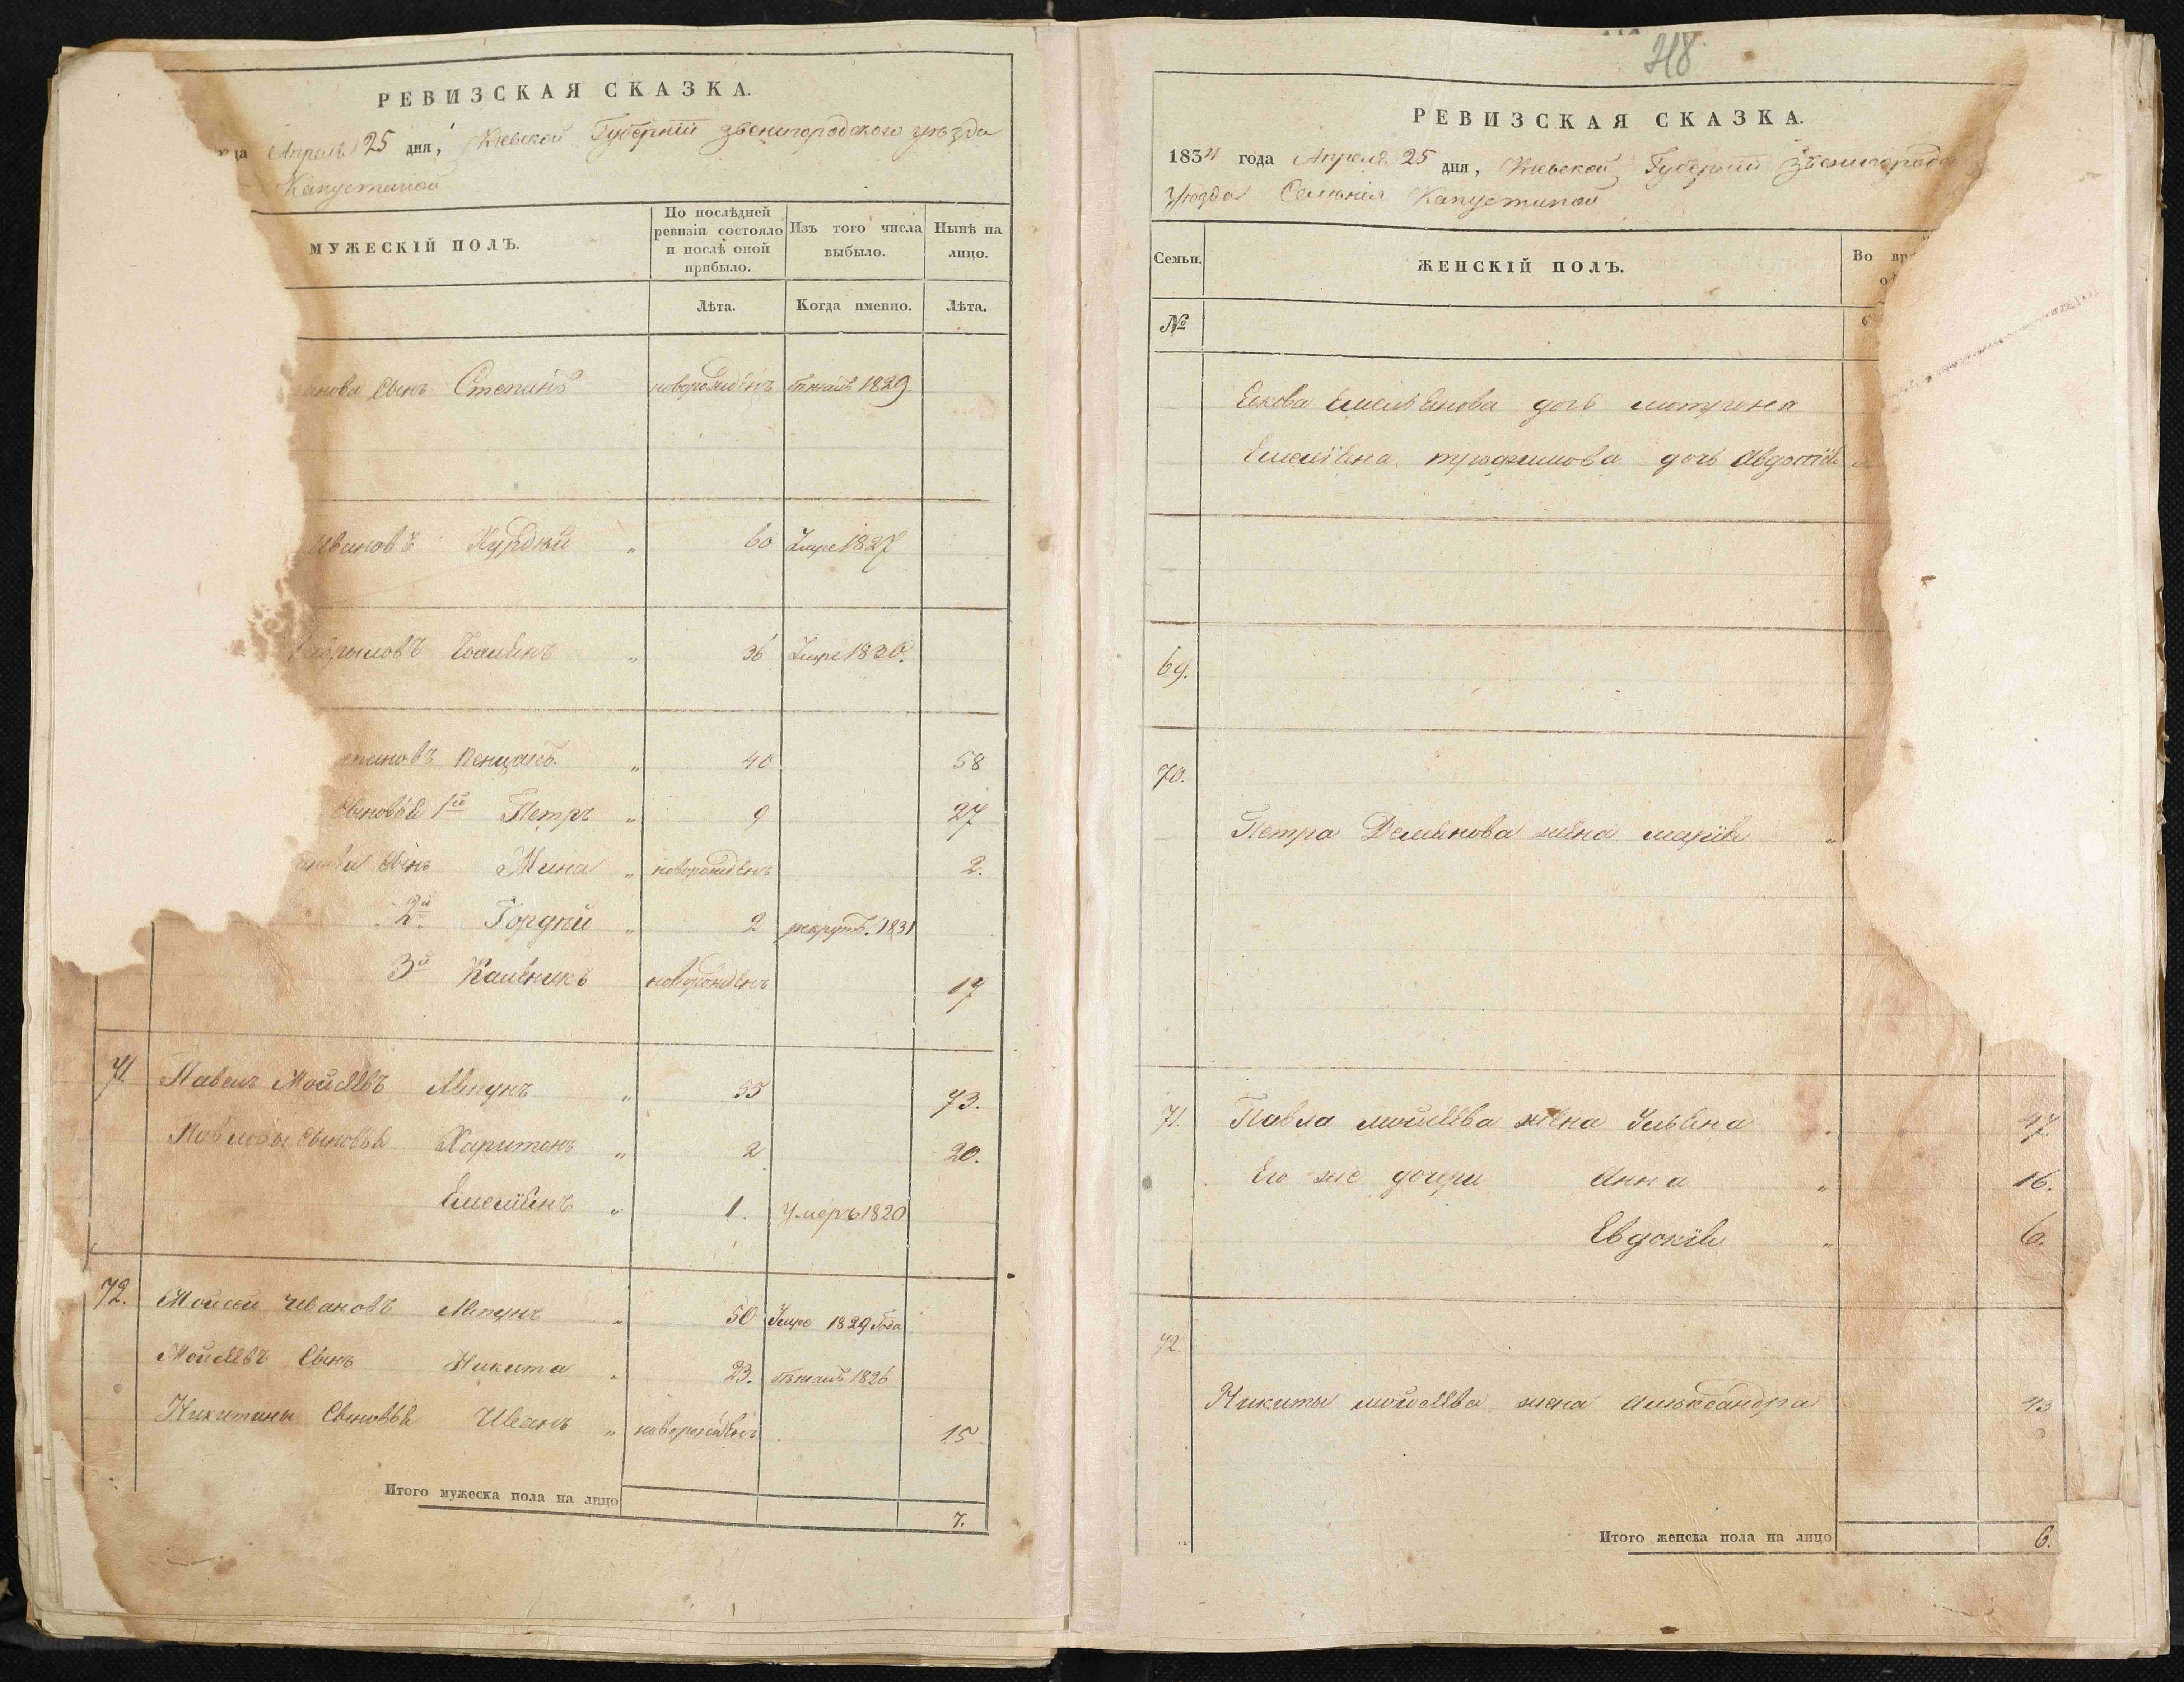 РЕВИЗСКАЯ СКАЗКА.
Апреля 25 дня, Киевской Губерніи Звенигородского уезда
Капустиной
МУЖЕСКІЙ ПОЛЪ.
По послѣдней ревизіи состояло и послѣ оной прибыло.
Изъ того числа выбыло.
Нынѣ на лицо.
Лѣта.
Когда именно.
Лѣта.
сынъ Степанъ новорожденъ бежалъ 1829
Ивановъ 60 Умре 1827
36 Умре 1830.
40 58
Сыновья 1й Петръ 9 27
Сынъ Мина новорожденъ 2.
2й Гордѣй 2 рекрутъ. 1831
3й Калѣникъ новорожденъ 17
71 Павелъ Мойсеевъ Лѣпунъ 55 73.
Павловы сыновья Харитонъ 2 20.
Емелиянъ 1. Умеръ 1820
72. Мойсей Ивановъ Лѣпунъ 50 Умре 1829 Года
Мойсеевъ Сынъ Никита 23. бѣжалъ 1826
Никитины Сыновья Иванъ новорожденъ 15
Итого мужеска пола на лицо 7.
318
РЕВИЗСКАЯ СКАЗКА.
1834 года Апреля 25 дня, Киевской Губерніи
Уезда Селенія Капустиной
Семьи.
ЖЕНСКІЙ ПОЛЪ.
Во
№
Емельянова дочь мотрона
Емелияна трофимова дочь Авдотия
69.
70.
Петра Демянова жена мария
71. Павла мойсеева жена Ульяна 47.
Его же дочери Анна 16.
Евдокія 6.
72.
Никиты мойсеева жена Александра 43
Итого женска пола на лицо 6.